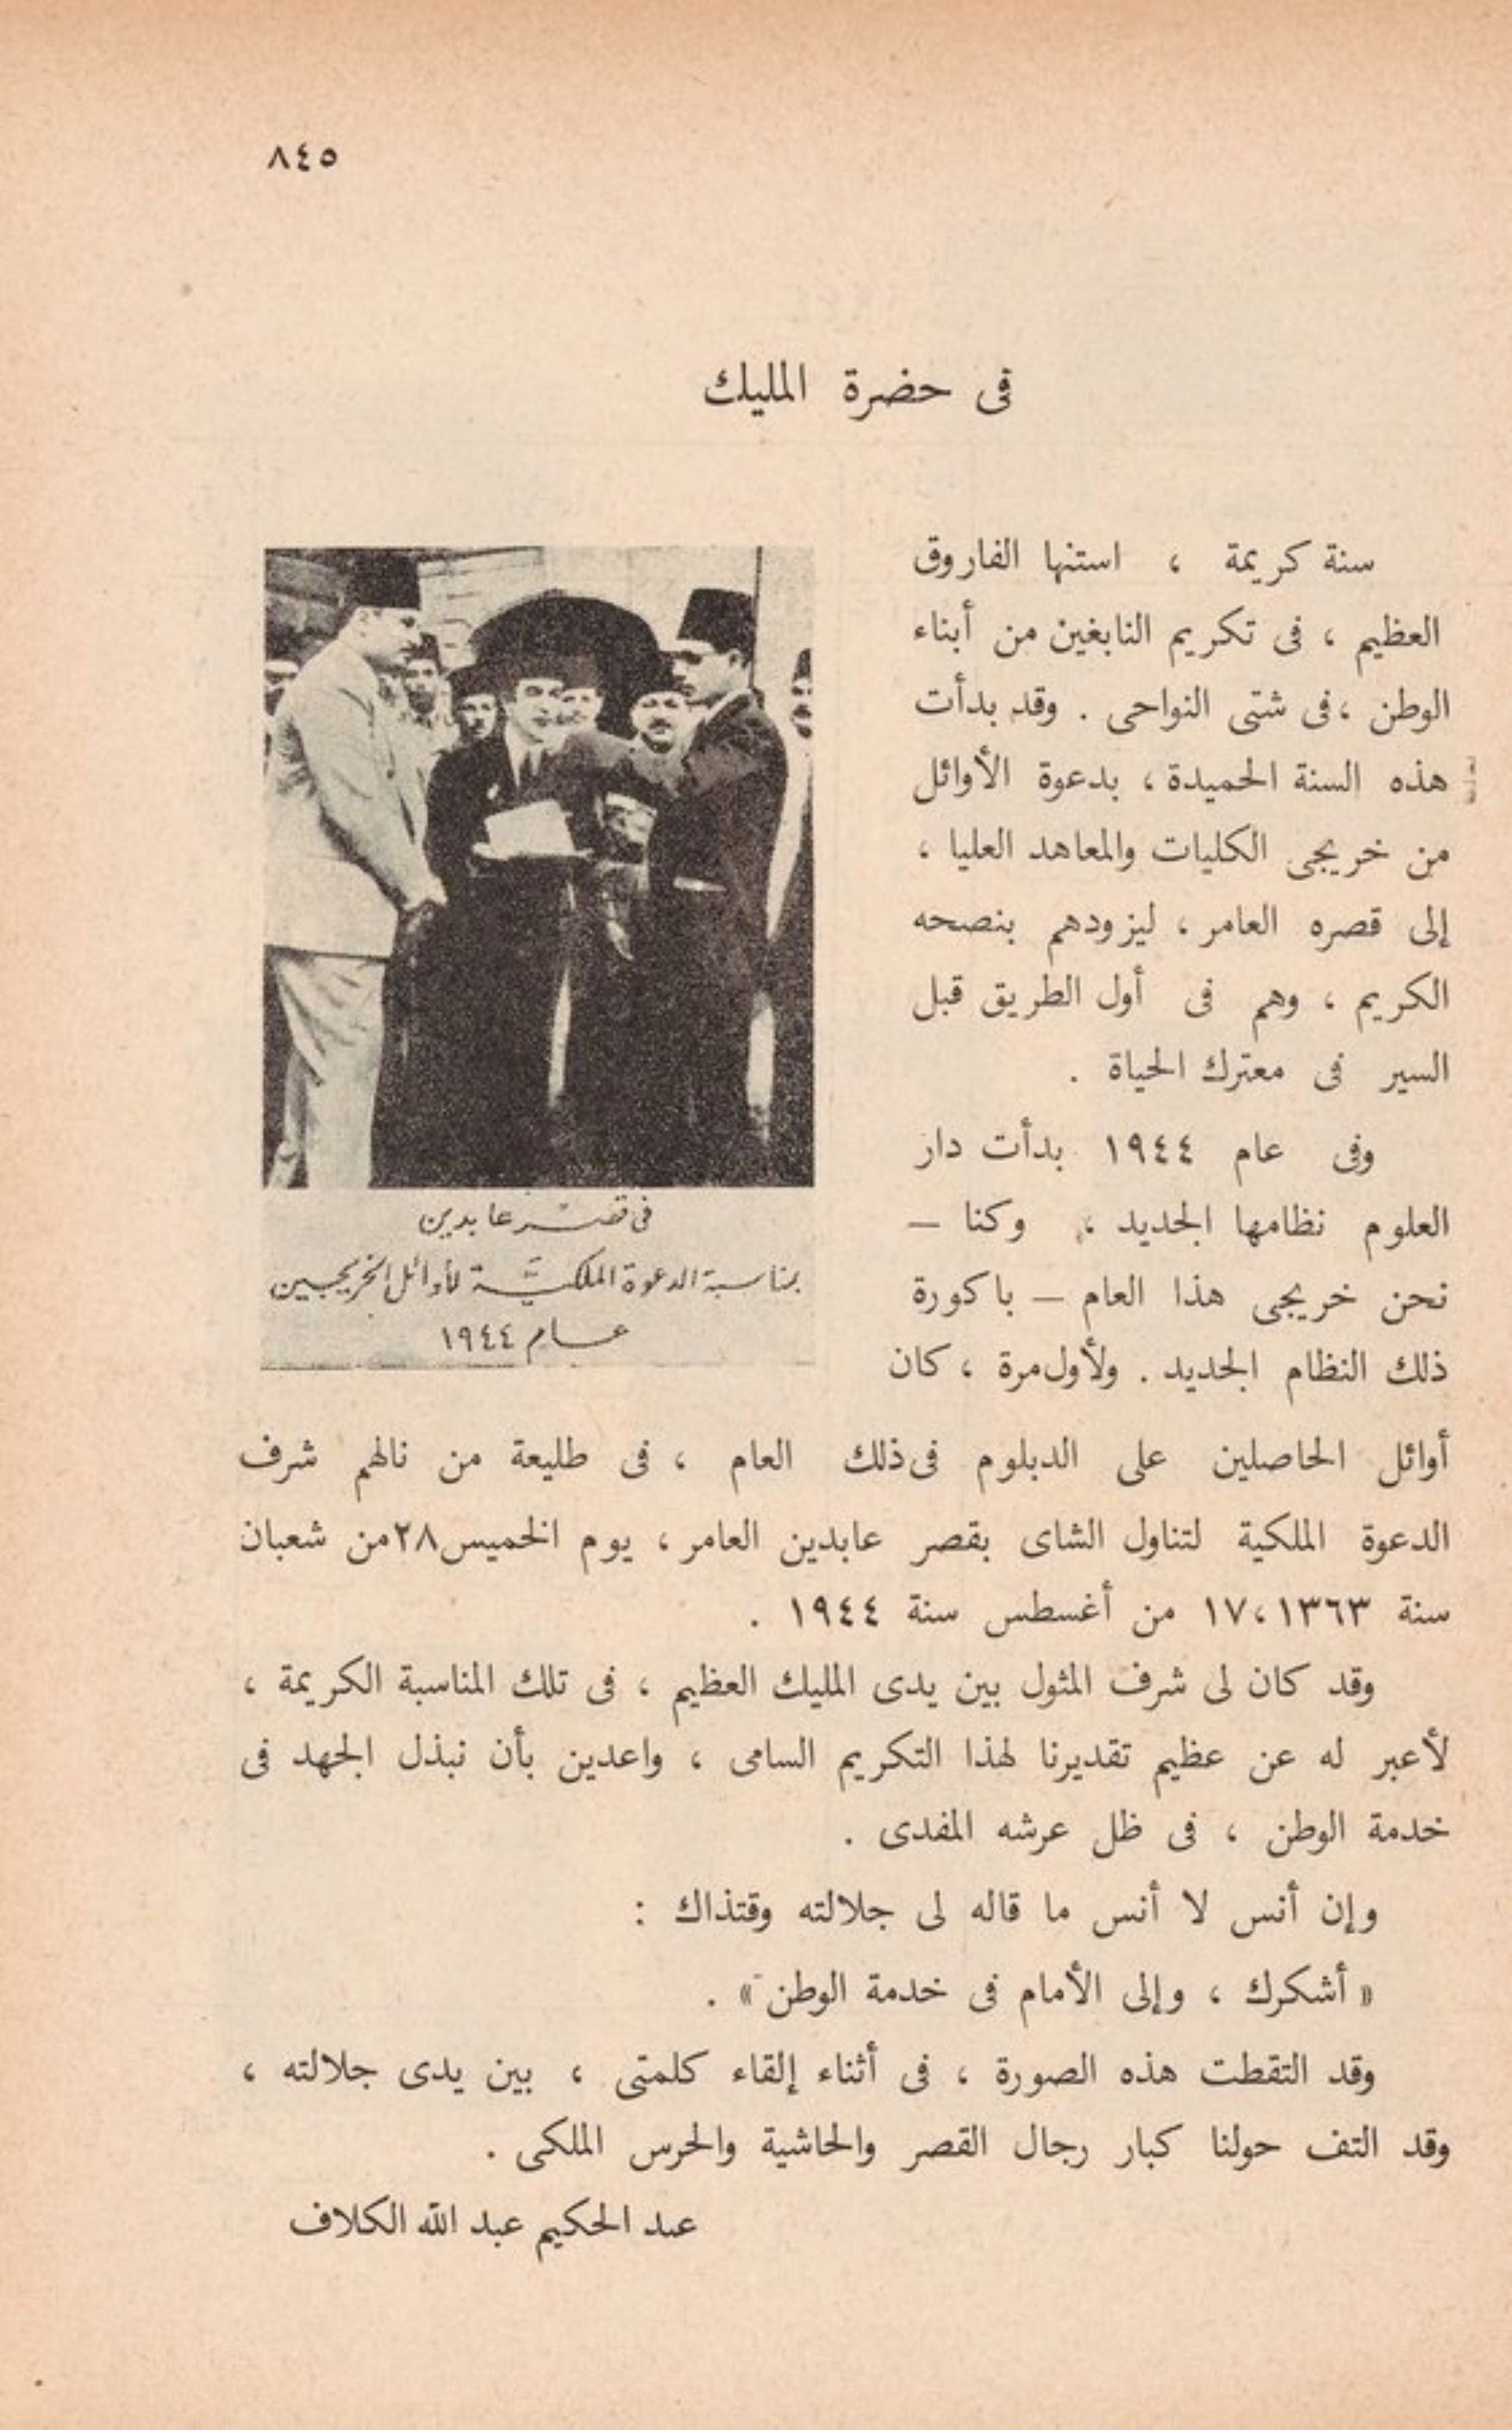 ٨٤٥
فى حضرة المليك
سنة كريمة ، استنها الفاروق
العظيم ، فى تكريم النابغين من أبناء
الوطن ، فى شتى النواحى . وقد بدأت
هذه السنة الحميدة ، بدعوة الأوائل
من خريجى الكليات والمعاهد العليا ،
إلى قصره العامر ، ليزودهم بنصحه
الكريم ، وهم فى أول الطريق قبل
السير فى معترك الحياة .
وفى عام ١٩٤٤ بدأت دار
العلوم نظامها الجديد ، وكنا —
نحن خريجى هذا العام — باكورة
ذلك النظام الجديد . ولأول مرة ، كان
فى قصر عابدين
بمناسبة الدعوة الملكية لأوائل الخريجين
عام ١٩٤٤
أوائل الحاصلين على الدبلوم فى ذلك العام ، فى طليعة من نالهم شرف
الدعوة الملكية لتناول الشاى بقصر عابدين العامر ، يوم الخميس ٢٨ من شعبان
سنة ١٣٦٣ ، ١٧ من أغسطس سنة ١٩٤٤ .
وقد كان لى شرف المثول بين يدى المليك العظيم ، فى تلك المناسبة الكريمة ،
لأعبر له عن عظيم تقديرنا لهذا التكريم السامى ، واعدين بأن نبذل الجهد فى
خدمة الوطن ، فى ظل عرشه المفدى .
وإن أنس لا أنس ما قاله لى جلالته وقتذاك :
« أشكرك ، وإلى الأمام فى خدمة الوطن » .
وقد التقطت هذه الصورة ، فى أثناء إلقاء كلمتى ، بين يدى جلالته ،
وقد التف حولنا كبار رجال القصر والحاشية والحرس الملكى .
عبد الحكيم عبد الله الكلاف